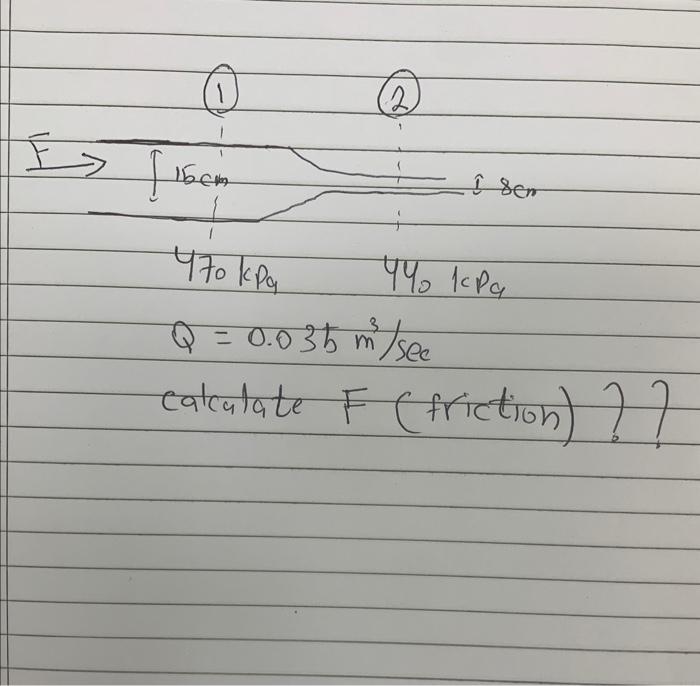 1 2
F 15 cm 8cm
470 kPa 440 kPa
Q = 0.035 m³/sec
calculate F (friction) ??